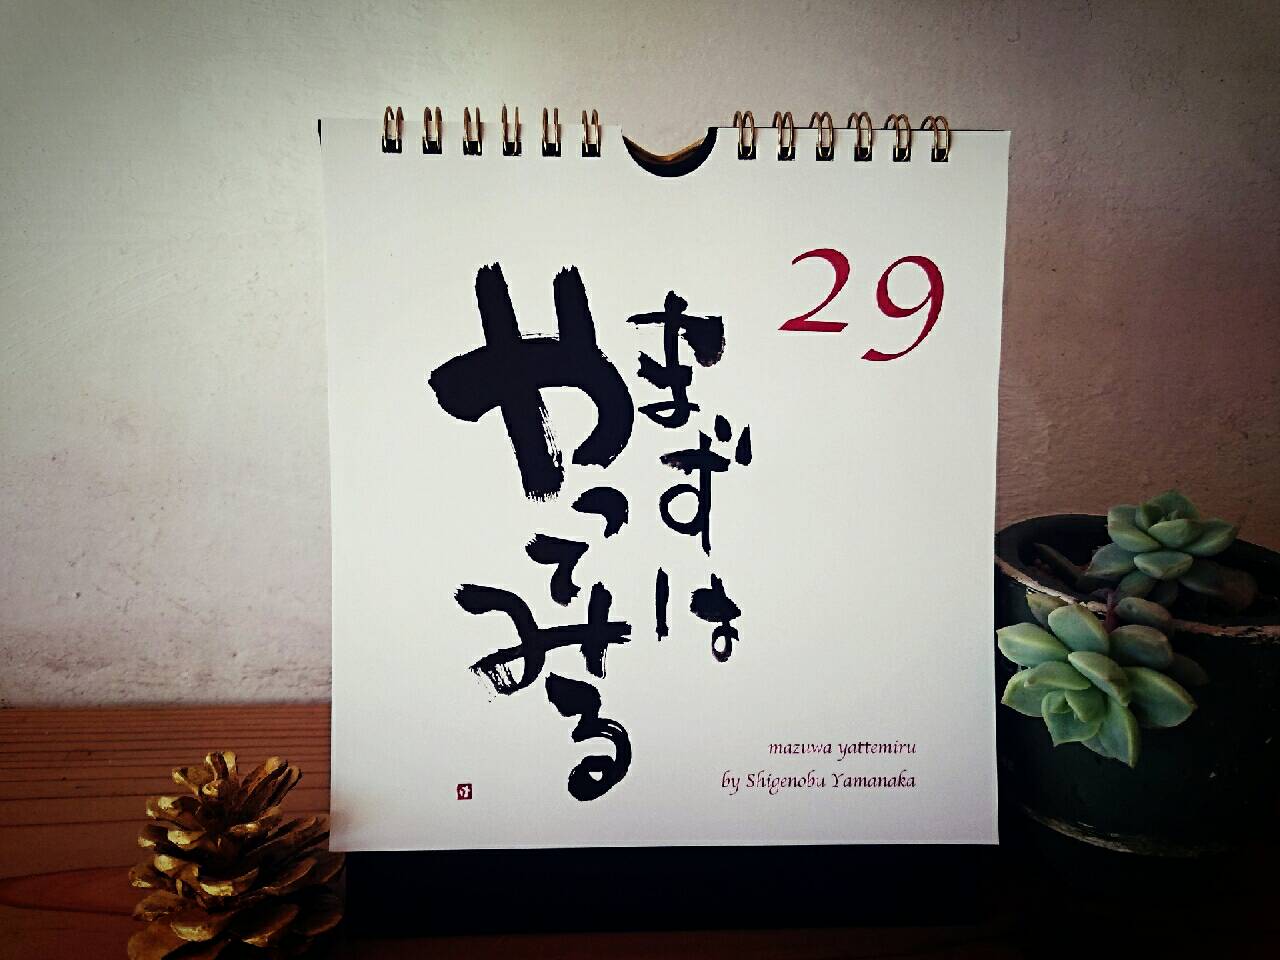 29
まずは
やってみる
mazuwa yattemiru
by Shigenobu Yamanaka